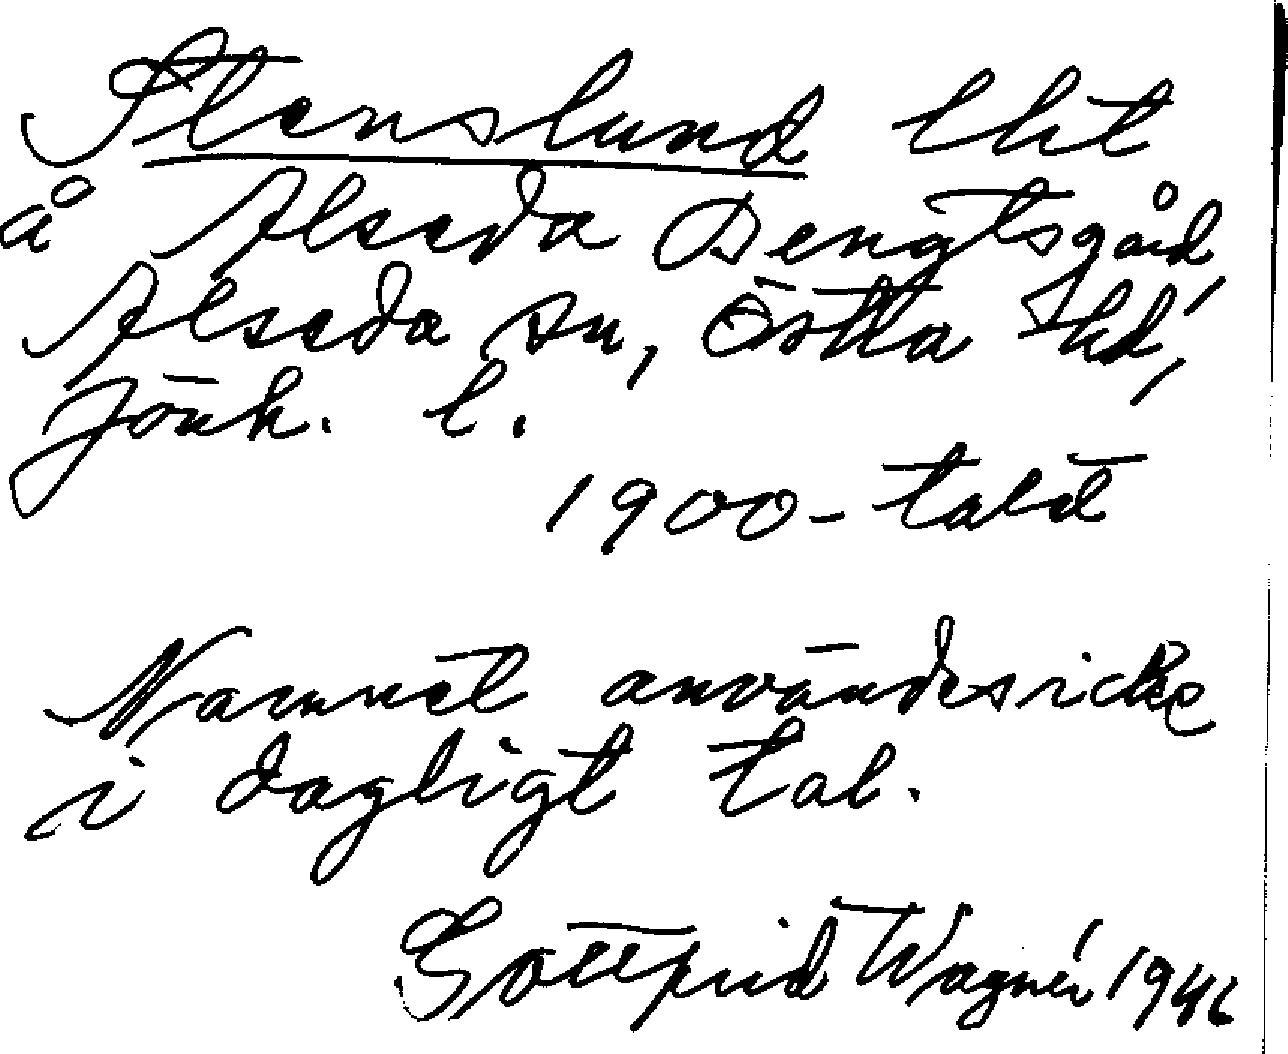 Stenslund lht
å Alseda Bengtsgård,
Alseda sn, Östra hd,
Jönk. l.
1900-talet
Namnet användes icke
i dagligt tal.
Gottfrid Wagnér 1946